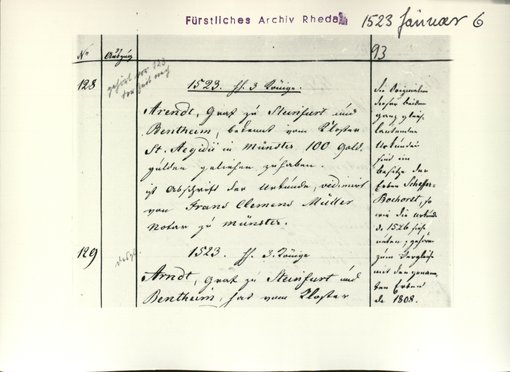 Fürstliches Archiv Rheda
1523 Januar 6
No
Auszug
93
128
gehört vor 123
1523. ff. 3 Könige.
Arendt, Graf zu Steinfurt und
Bentheim, bekennt vom Kloster
St. Aegidi in Münster 100 Gold-
gülden geliehen zu haben.
ist Abschrift der Urkunde, vidimirt
von Franz Clemens Müller
Notar zu Münster.
Die Originalien
dieser beiden
ganz gleich
lautenden
Urkunden
sind im
Besitze der
Erben Scheffer-
Bochorst, so
wie die Urkunde
d. 1526
unten, gehören
zum Vergleich
mit den genann-
ten Erben
de 1808.
129
1523. ff. 3. Könige
Arndt, Graf zu Steinfurt und
Bentheim, hat vom Kloster